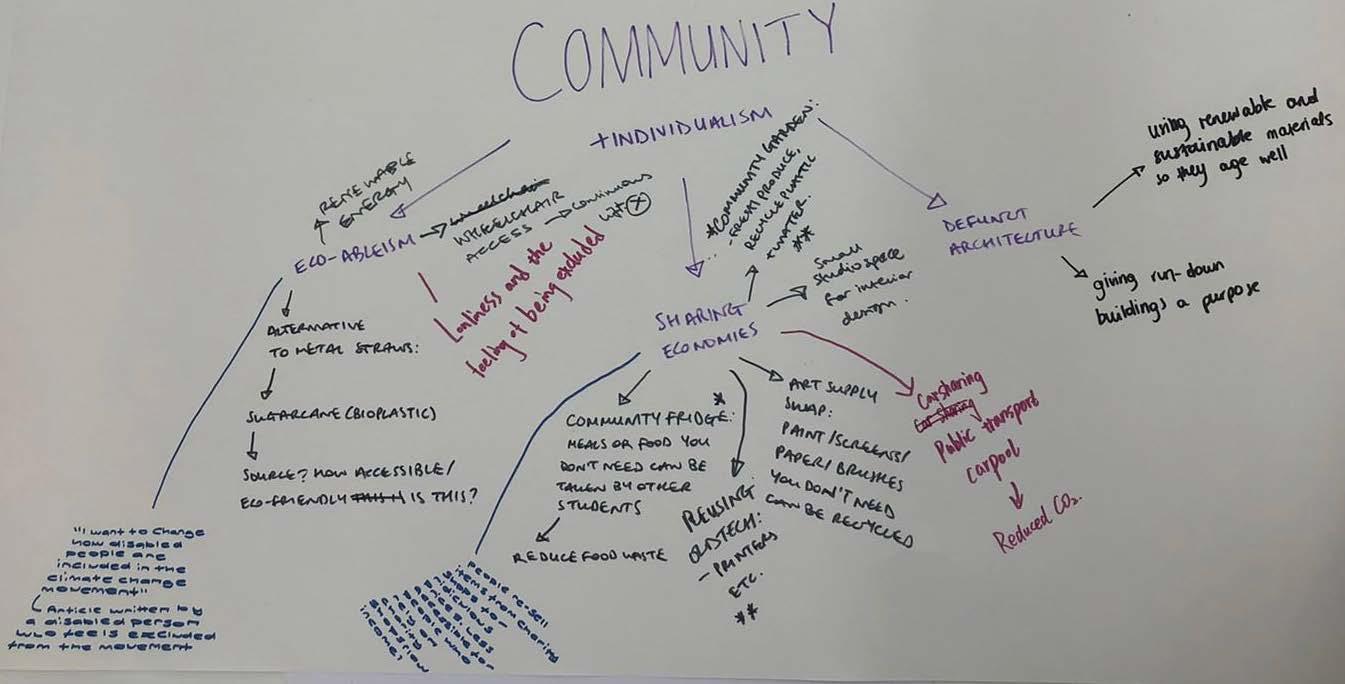 COMMUNITY
+INDIVIDUALISM
RENEWABLE
ENERGY
ECO-ABLEISM
WHEELCHAIR
ACCESS
continuous
lift
Lonliness and the
feeling of being excluded
ALTERNATIVE
TO METAL STRAWS:
SUGARCANE (BIOPLASTIC)
SOURCE? HOW ACCESSIBLE/
ECO-FRIENDLY IS THIS?
"I want to change
how disabled
people are
included in the
climate change
movement"
Article written by
a disabled person
who feels excluded
from the movement
SHARING
ECONOMIES
*COMMUNITY GARDEN:
-FRESH PRODUCE,
RECYCLE PLASTIC
+WATER.
**
small
studio space
for interior
design.
COMMUNITY FRIDGE: *
MEALS OR FOOD YOU
DON'T NEED CAN BE
TAKEN BY OTHER
STUDENTS
REDUCE FOOD WASTE
People re-sell
items from charity
shops for
ridiculous
prices, less
accessible for
people who
rely on
charity
shops/low
income?
REUSING
OLD TECH:
- PRINTERS
ETC.
**
ART SUPPLY
SWAP:
PAINT/SCREENS/
PAPER/BRUSHES
YOU DON'T NEED
CAN BE RECYCLED
Carsharing
Car sharing
Public transport
carpool
Reduced CO2.
DEFUNCT
ARCHITECTURE
using renewable and
sustainable materials
so they age well
giving run-down
buildings a purpose